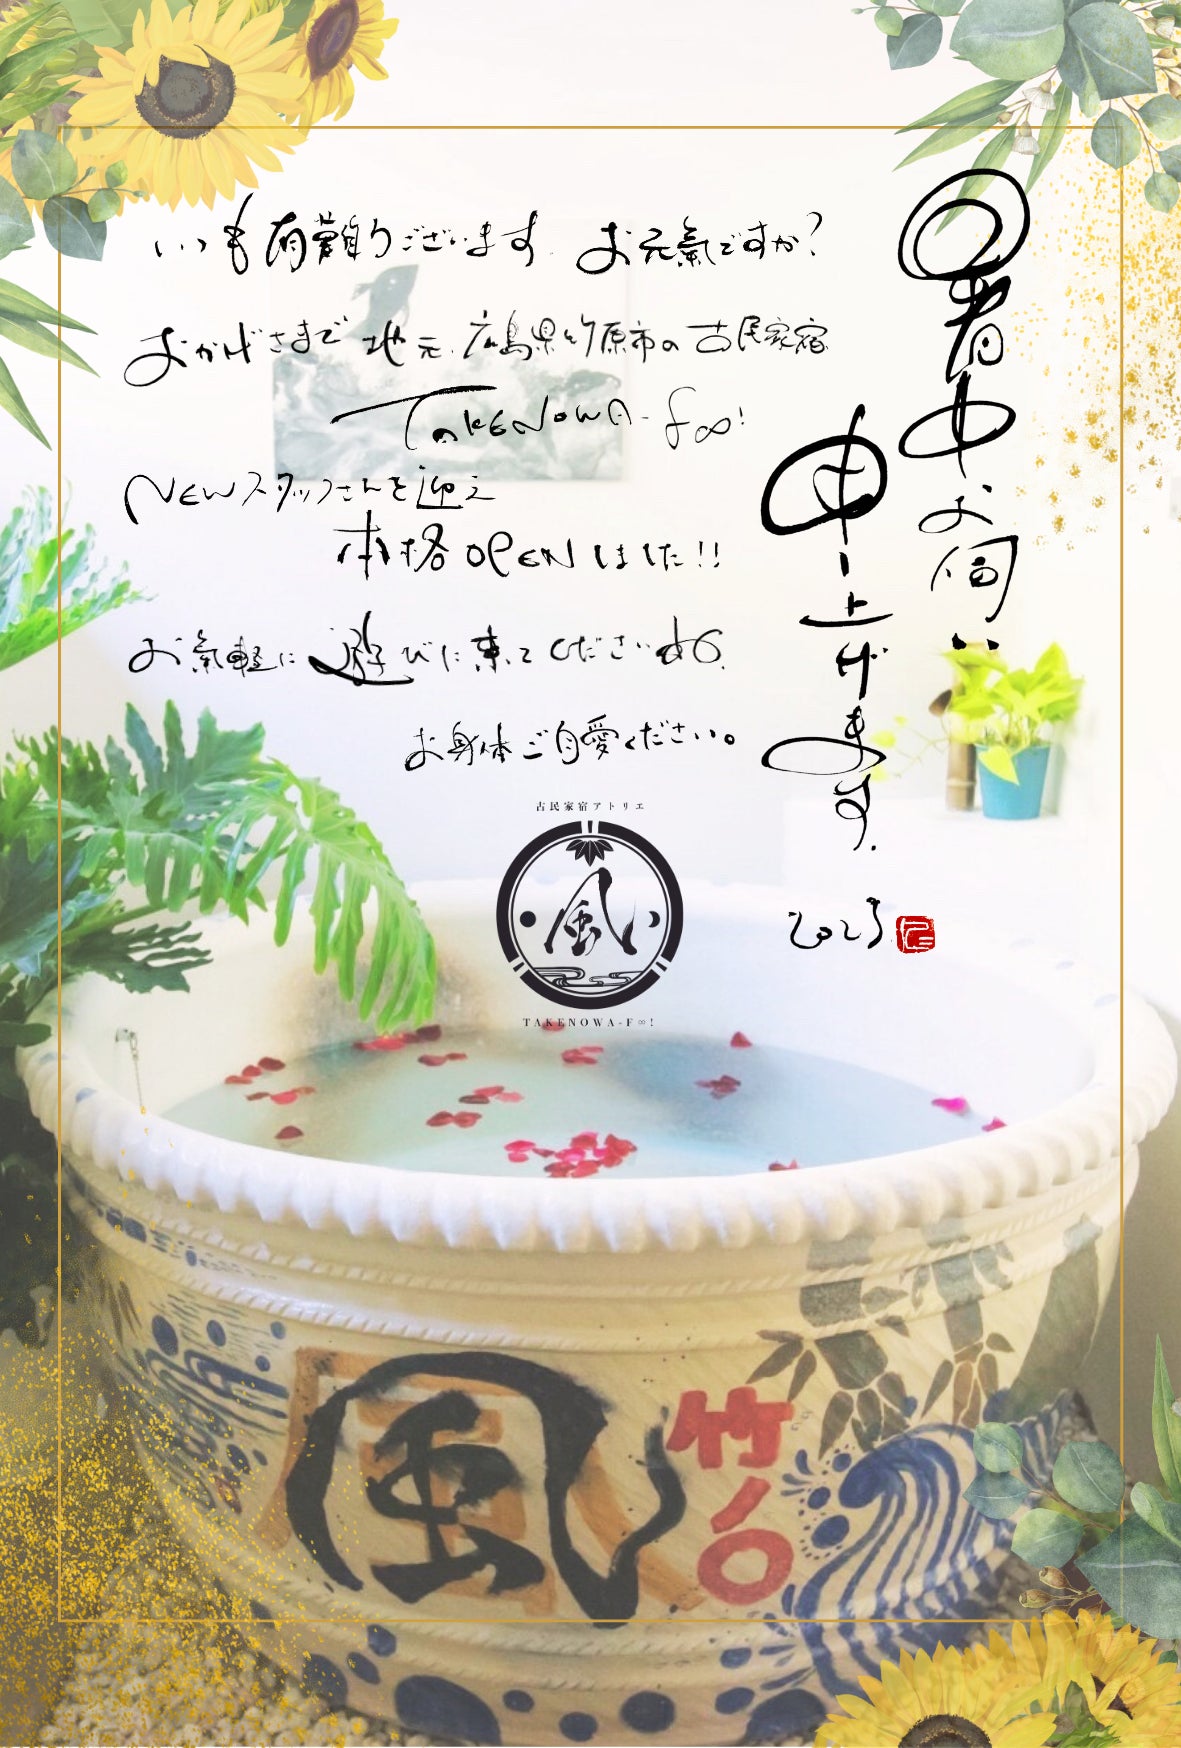 暑中お伺い
申し上げます.
いつも有難うございます. お元氣ですか?
おかげさまで 地元.広島県竹原市の古民家宿
TAKENOWA-F∞!
NEWスタッフさんを迎え
本格OPENしました!!
お氣軽に遊びに来てくださいね.
お身体ご自愛ください。
2023
古民家宿アトリエ
風
TAKENOWA-F∞!
風
竹ノ〇